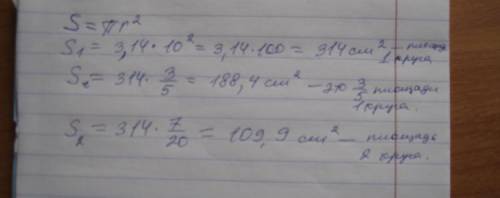 S = πr²
S₁ = 3,14 · 10² = 3,14 · 100 = 314 см² — площадь 1 круга
S₂ = 314 · 3/5 = 188,4 см² — это 3/5 площади 1 круга.
S₂ = 314 · 7/20 = 109,9 см² — площадь 2 круга.